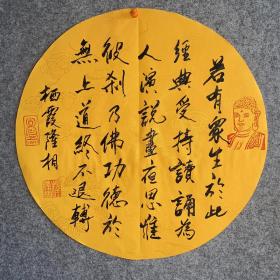 若有眾生於此
經典受持讀誦為
人演說晝夜思惟
彼刹乃佛功德於
無上道終不退轉
栖霞隆相